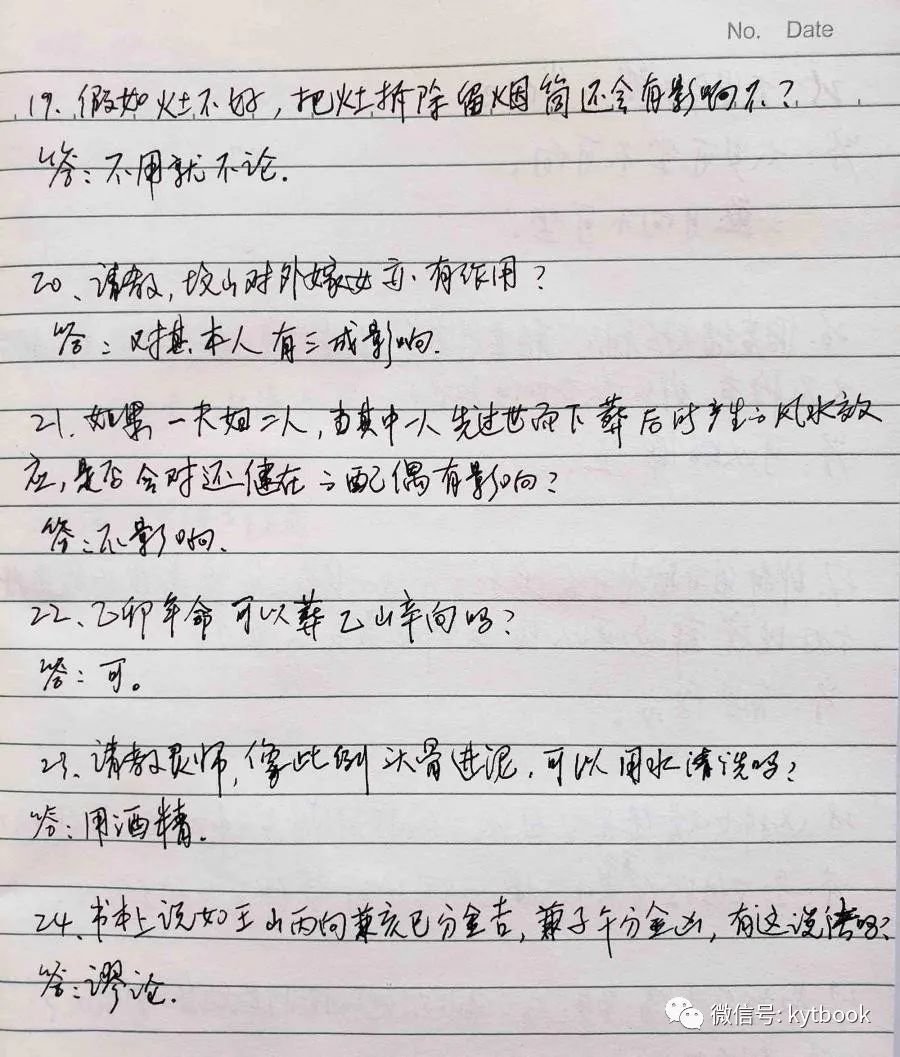 No. Date
19. 假如灶不好，把灶拆除留烟筒还会有影响不？
答：不用就不论.
20、请教，坟山对外嫁女亦有作用？
答：对其本人有三成影响.
21. 如果一夫妇二人，当其中一人先过世而下葬后所产生的风水效
应，是否会对还健在的配偶有影响？
答：不影响.
22、乙卯年命可以葬乙山辛向吗？
答：可。
23. 请教灵师，像此例头骨进泥，可以用水清洗吗？
答：用酒精.
24、书本上说如壬山丙向兼亥巳分金吉，兼子午分金凶，有这说法吗？
答：谬论.
微信号: kytbook